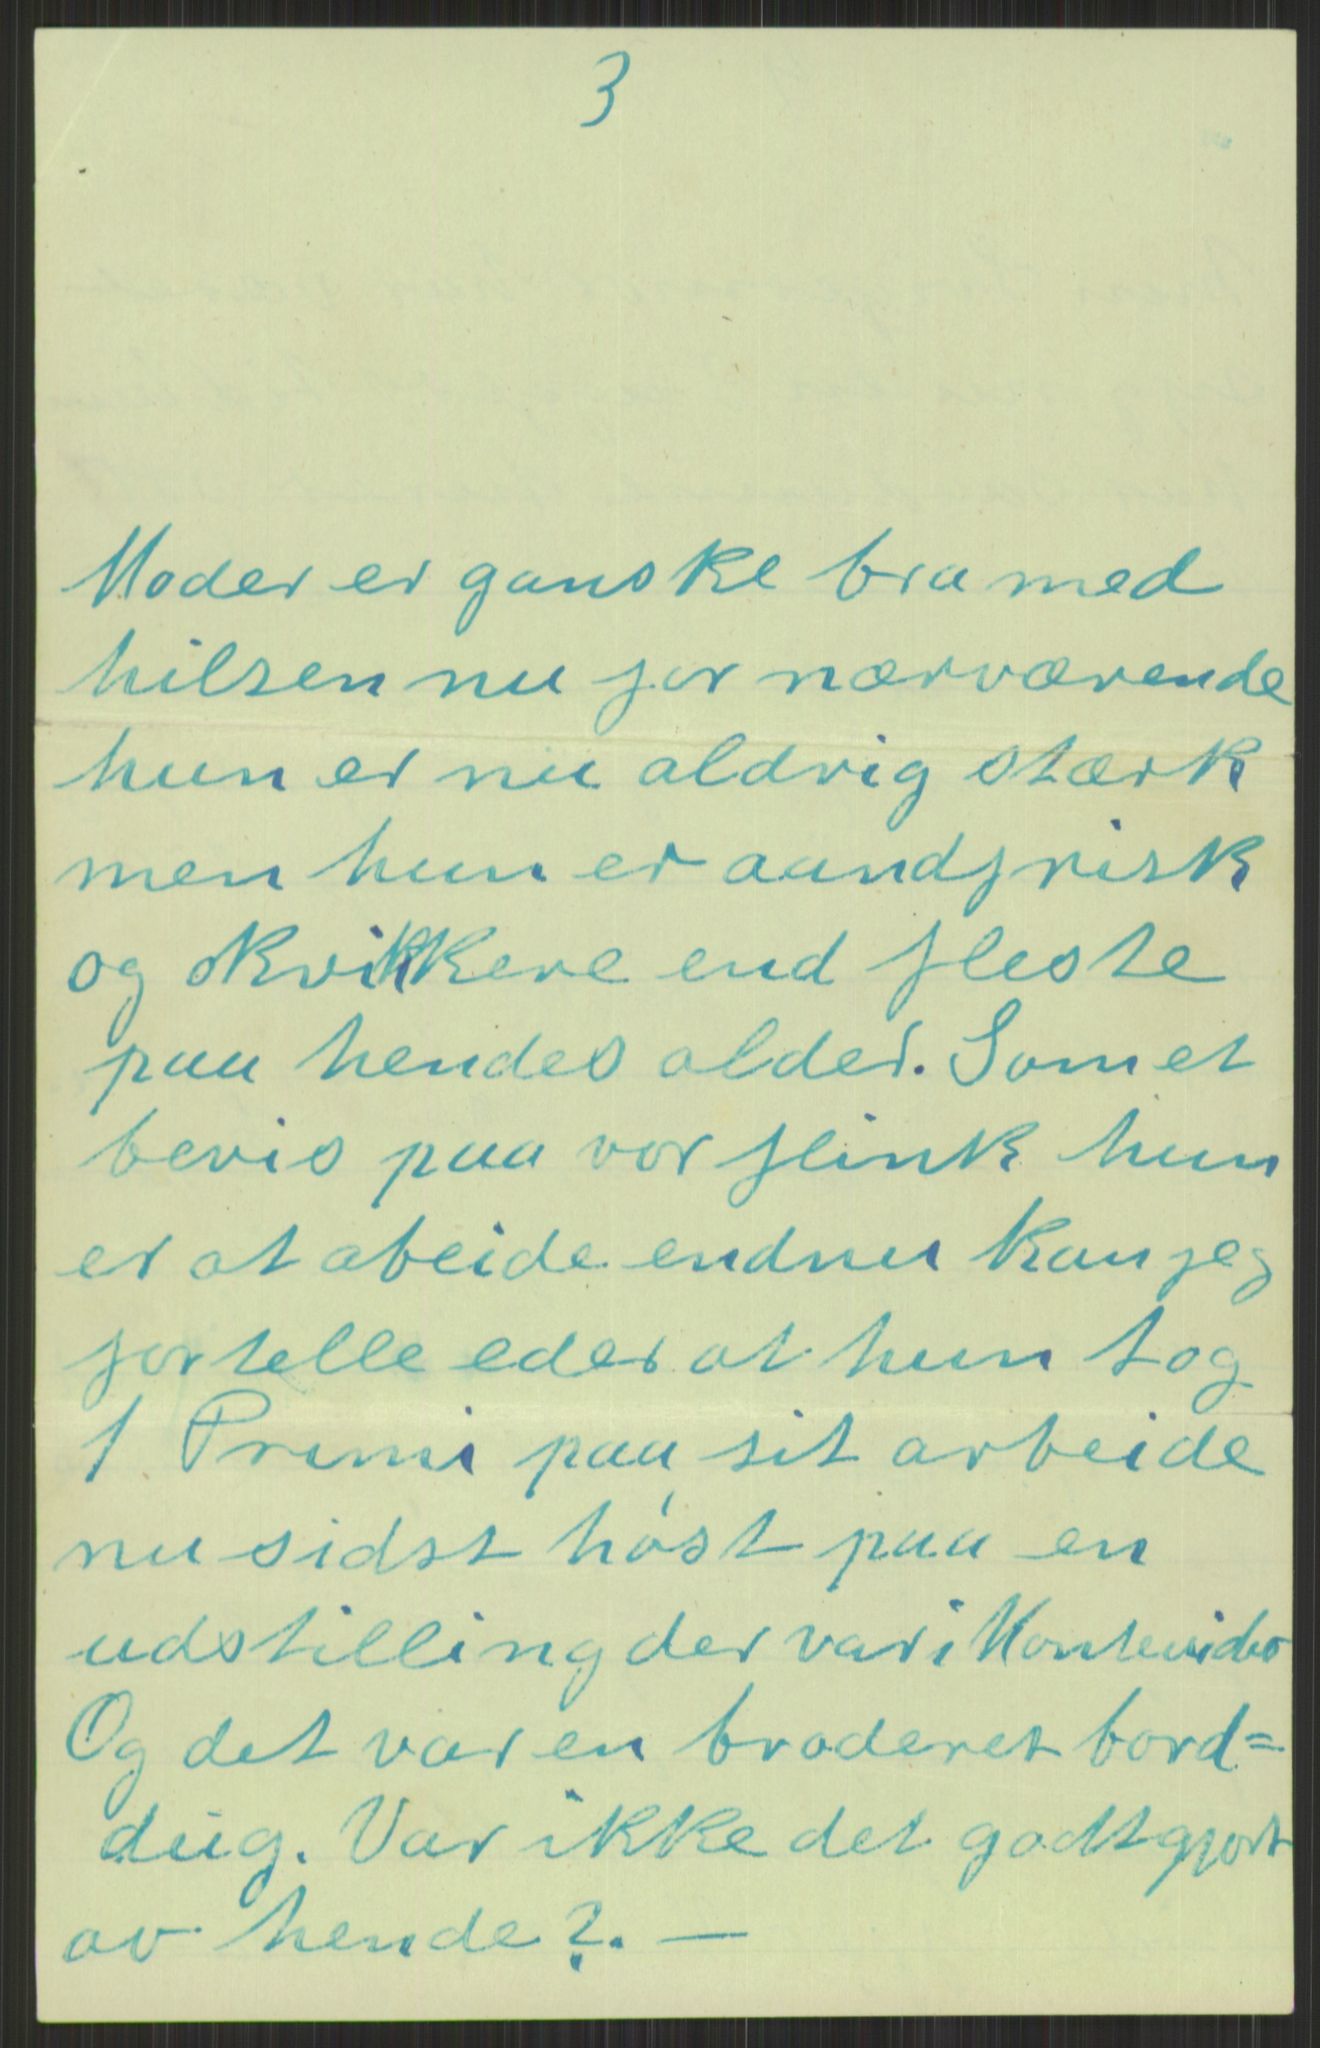 3
Moder er ganske bra med
hilsen nu for nærværende
hun er nu aldrig stærk
men hun er aandfrisk
og kvikkere end fleste
paa hendes alder. Som et
bevis paa vor flink hun
er at abeide endnu kan jeg
fortelle eder at hun tog
1 Premi paa sit arbeide
nu sidst høst paa en
udstilling der var i Montevideo
Og det var en broderet bord=
dug. Var ikke det godt gjort
av hende?. —